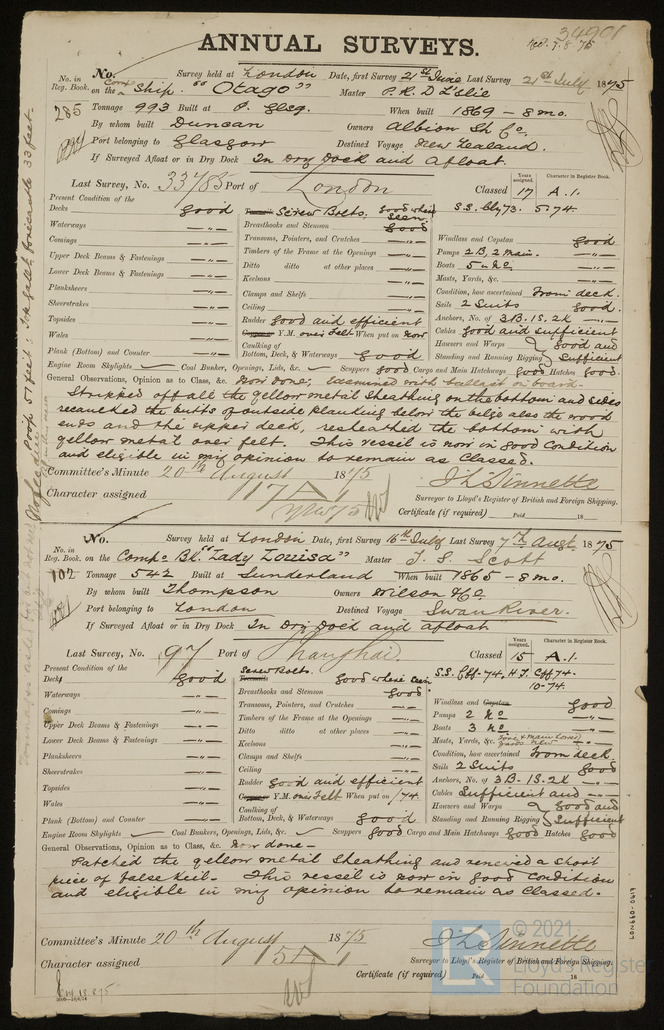 34901
Rec. 7.8.75
ANNUAL SURVEYS.
No. Survey held at London Date, first Survey 21st June Last Survey 21st July 1875
No. in Reg. Book. on the Comp Ship "Otago" Master
285 Tonnage 993 Built at P. Glsg. When built 1869 - 8 mo.
By whom built Duncan Owners Albion Sh Co.
Port belonging to Glasgow Destined Voyage New Zealand.
If Surveyed Afloat or in Dry Dock In Dry Dock and afloat.
Last Survey, No. 33785 Port of London Classed 17 A.1.
Years assigned. Character in Register Book.
S.S. 73. 5-74.
Present Condition of the
Decks good
Waterways —„—
Comings —„—
Upper Deck Beams & Fastenings —„—
Lower Deck Beams & Fastenings —„—
Planksheers —„—
Sheerstrakes —„—
Topsides —„—
Wales —„—
Plank (Bottom) and Counter —„—
Treenails Screw Bolts. good where seen
Breasthooks and Stemson good
Transoms, Pointers, and Crutches —„—
Timbers of the Frame at the Openings —„—
Ditto ditto at other places —„—
Keelsons —„—
Clamps and Shelfs —„—
Ceiling —„—
Rudder good and efficient
Copper Y.M. over Felt When put on now
Caulking of Bottom, Deck, & Waterways good
Windlass and Capstan good
Pumps 2 B, 2 Main. —„—
Boats 5 in No. —„—
Masts, Yards, &c. —„—
Condition, how ascertained From deck.
Sails 2 Suits good.
Anchors, No. of 3B. 1S. 2K —„—
Cables good and sufficient
Hawsers and Warps } good and
Standing and Running Rigging } Sufficient
Engine Room Skylights — Coal Bunkers, Openings, Lids, &c. — Scuppers good Cargo and Main Hatchways good Hatches good.
General Observations, Opinion as to Class, &c. Now done, examined with ballast on board.
Stripped off all the yellow metal sheathing on the bottom and sides
recaulked the butts of outside planking below the belge also the wood
ends and the upper deck, resheathed the bottom with
yellow metal over felt. This vessel is now in good Condition
and eligible in my opinion to remain as Classed.
Committee's Minute 20th August 1875
Character assigned 17 A 1
Surveyor to Lloyd's Register of British and Foreign Shipping.
Certificate (if required) Paid 18
Poop 51 feet: forecastle 33 feet.
No. Survey held at London Date, first Survey 16th July Last Survey 7th Augt. 1875
No. in Reg. Book. on the Compo Bk. "Lady Louisa" Master J. S. Scott
102 Tonnage 542 Built at Sunderland When built 1865 - 8 mo.
By whom built Thompson Owners Wilson & Co
Port belonging to London Destined Voyage Swan River.
If Surveyed Afloat or in Dry Dock In Dry Dock and afloat
Last Survey, No. 97 Port of Shanghai. Classed 15 A.1.
Years assigned. Character in Register Book.
10-74.
Present Condition of the
Decks good
Waterways —„—
Comings —„—
Upper Deck Beams & Fastenings —„—
Lower Deck Beams & Fastenings —„—
Planksheers —„—
Sheerstrakes —„—
Topsides —„—
Wales —„—
Plank (Bottom) and Counter —„—
Screw Bolts.
Treenails good where seen
Breasthooks and Stemson good
Transoms, Pointers, and Crutches —„—
Timbers of the Frame at the Openings —„—
Ditto ditto at other places —„—
Keelsons —„—
Clamps and Shelfs —„—
Ceiling —„—
Rudder good and efficient
Copper Y.M. over Felt When put on /74.
Caulking of Bottom, Deck, & Waterways good
Windlass and Capstan good
Pumps 2 No —„—
Boats 3 No —„—
Masts, Yards, &c. Fore & Main Lower yards New —„—
Condition, how ascertained From deck.
Sails 2 Suits good
Anchors, No. of 3B. 1S. 2K —„—
Cables Sufficient and —„—
Hawsers and Warps } good and
Standing and Running Rigging } Sufficient
Engine Room Skylights — Coal Bunkers, Openings, Lids, &c. — Scuppers good Cargo and Main Hatchways good Hatches good
General Observations, Opinion as to Class, &c. Now done -
Patched the yellow metal Sheathing and renewed a short
piece of false keel. This vessel is now in good Condition
and eligible in my opinion to remain as Classed.
Committee's Minute 20th August 1875
Character assigned 15 A 1
Surveyor to Lloyd's Register of British and Foreign Shipping.
Certificate (if required) Paid 18
LON660-0419
© 2021
Lloyd's Register
Foundation